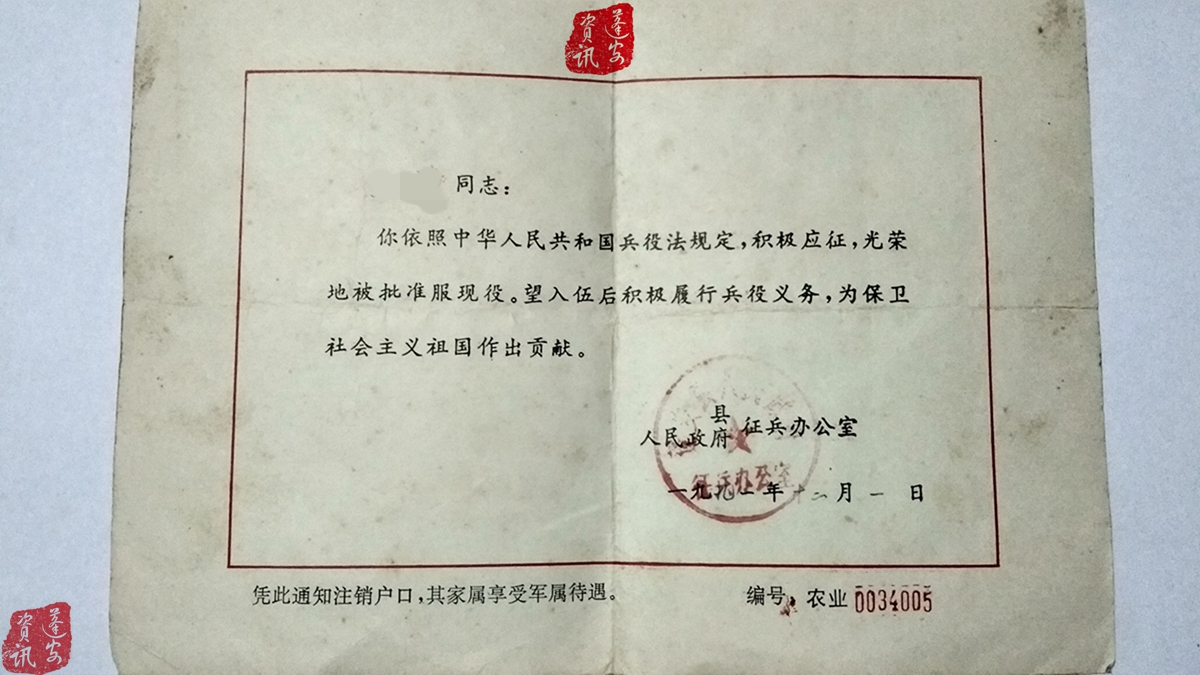 蓬安
资讯
同志：
你依照中华人民共和国兵役法规定，积极应征，光荣
地被批准服现役。望入伍后积极履行兵役义务，为保卫
社会主义祖国作出贡献。
县
人民政府 征兵办公室
征兵办公室
一九九一年十二月一日
凭此通知注销户口，其家属享受军属待遇。
编号：农业 0034005
蓬安
资讯